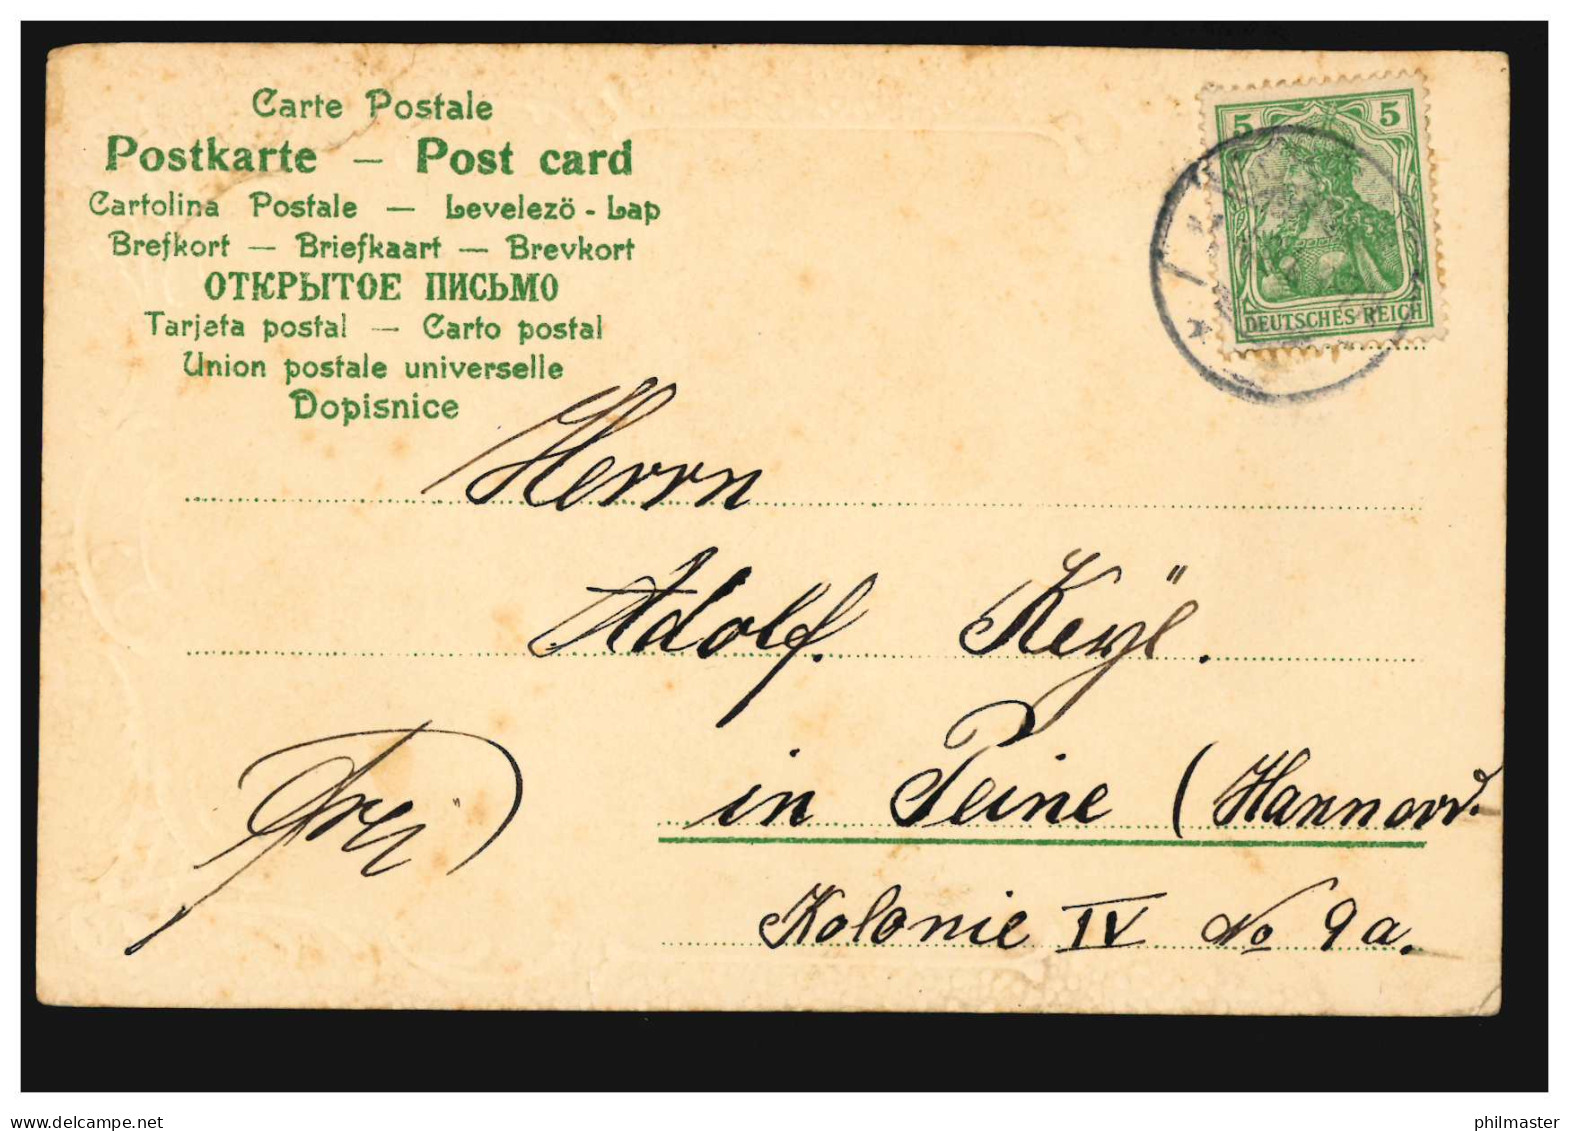 Carte Postale
Postkarte – Post card
Cartolina Postale – Levelező-Lap
Brefkort – Briefkaart – Brevkort
ОТКРЫТОЕ ПИСЬМО
Tarjeta postal – Carto postal
Union postale universelle
Dopisnice
5 5
DEUTSCHES REICH
Herrn
Adolf Keÿl.
in Peine (Hannov.
Frei)
Kolonie IV No 9a.
www.delcampe.net
philmaster